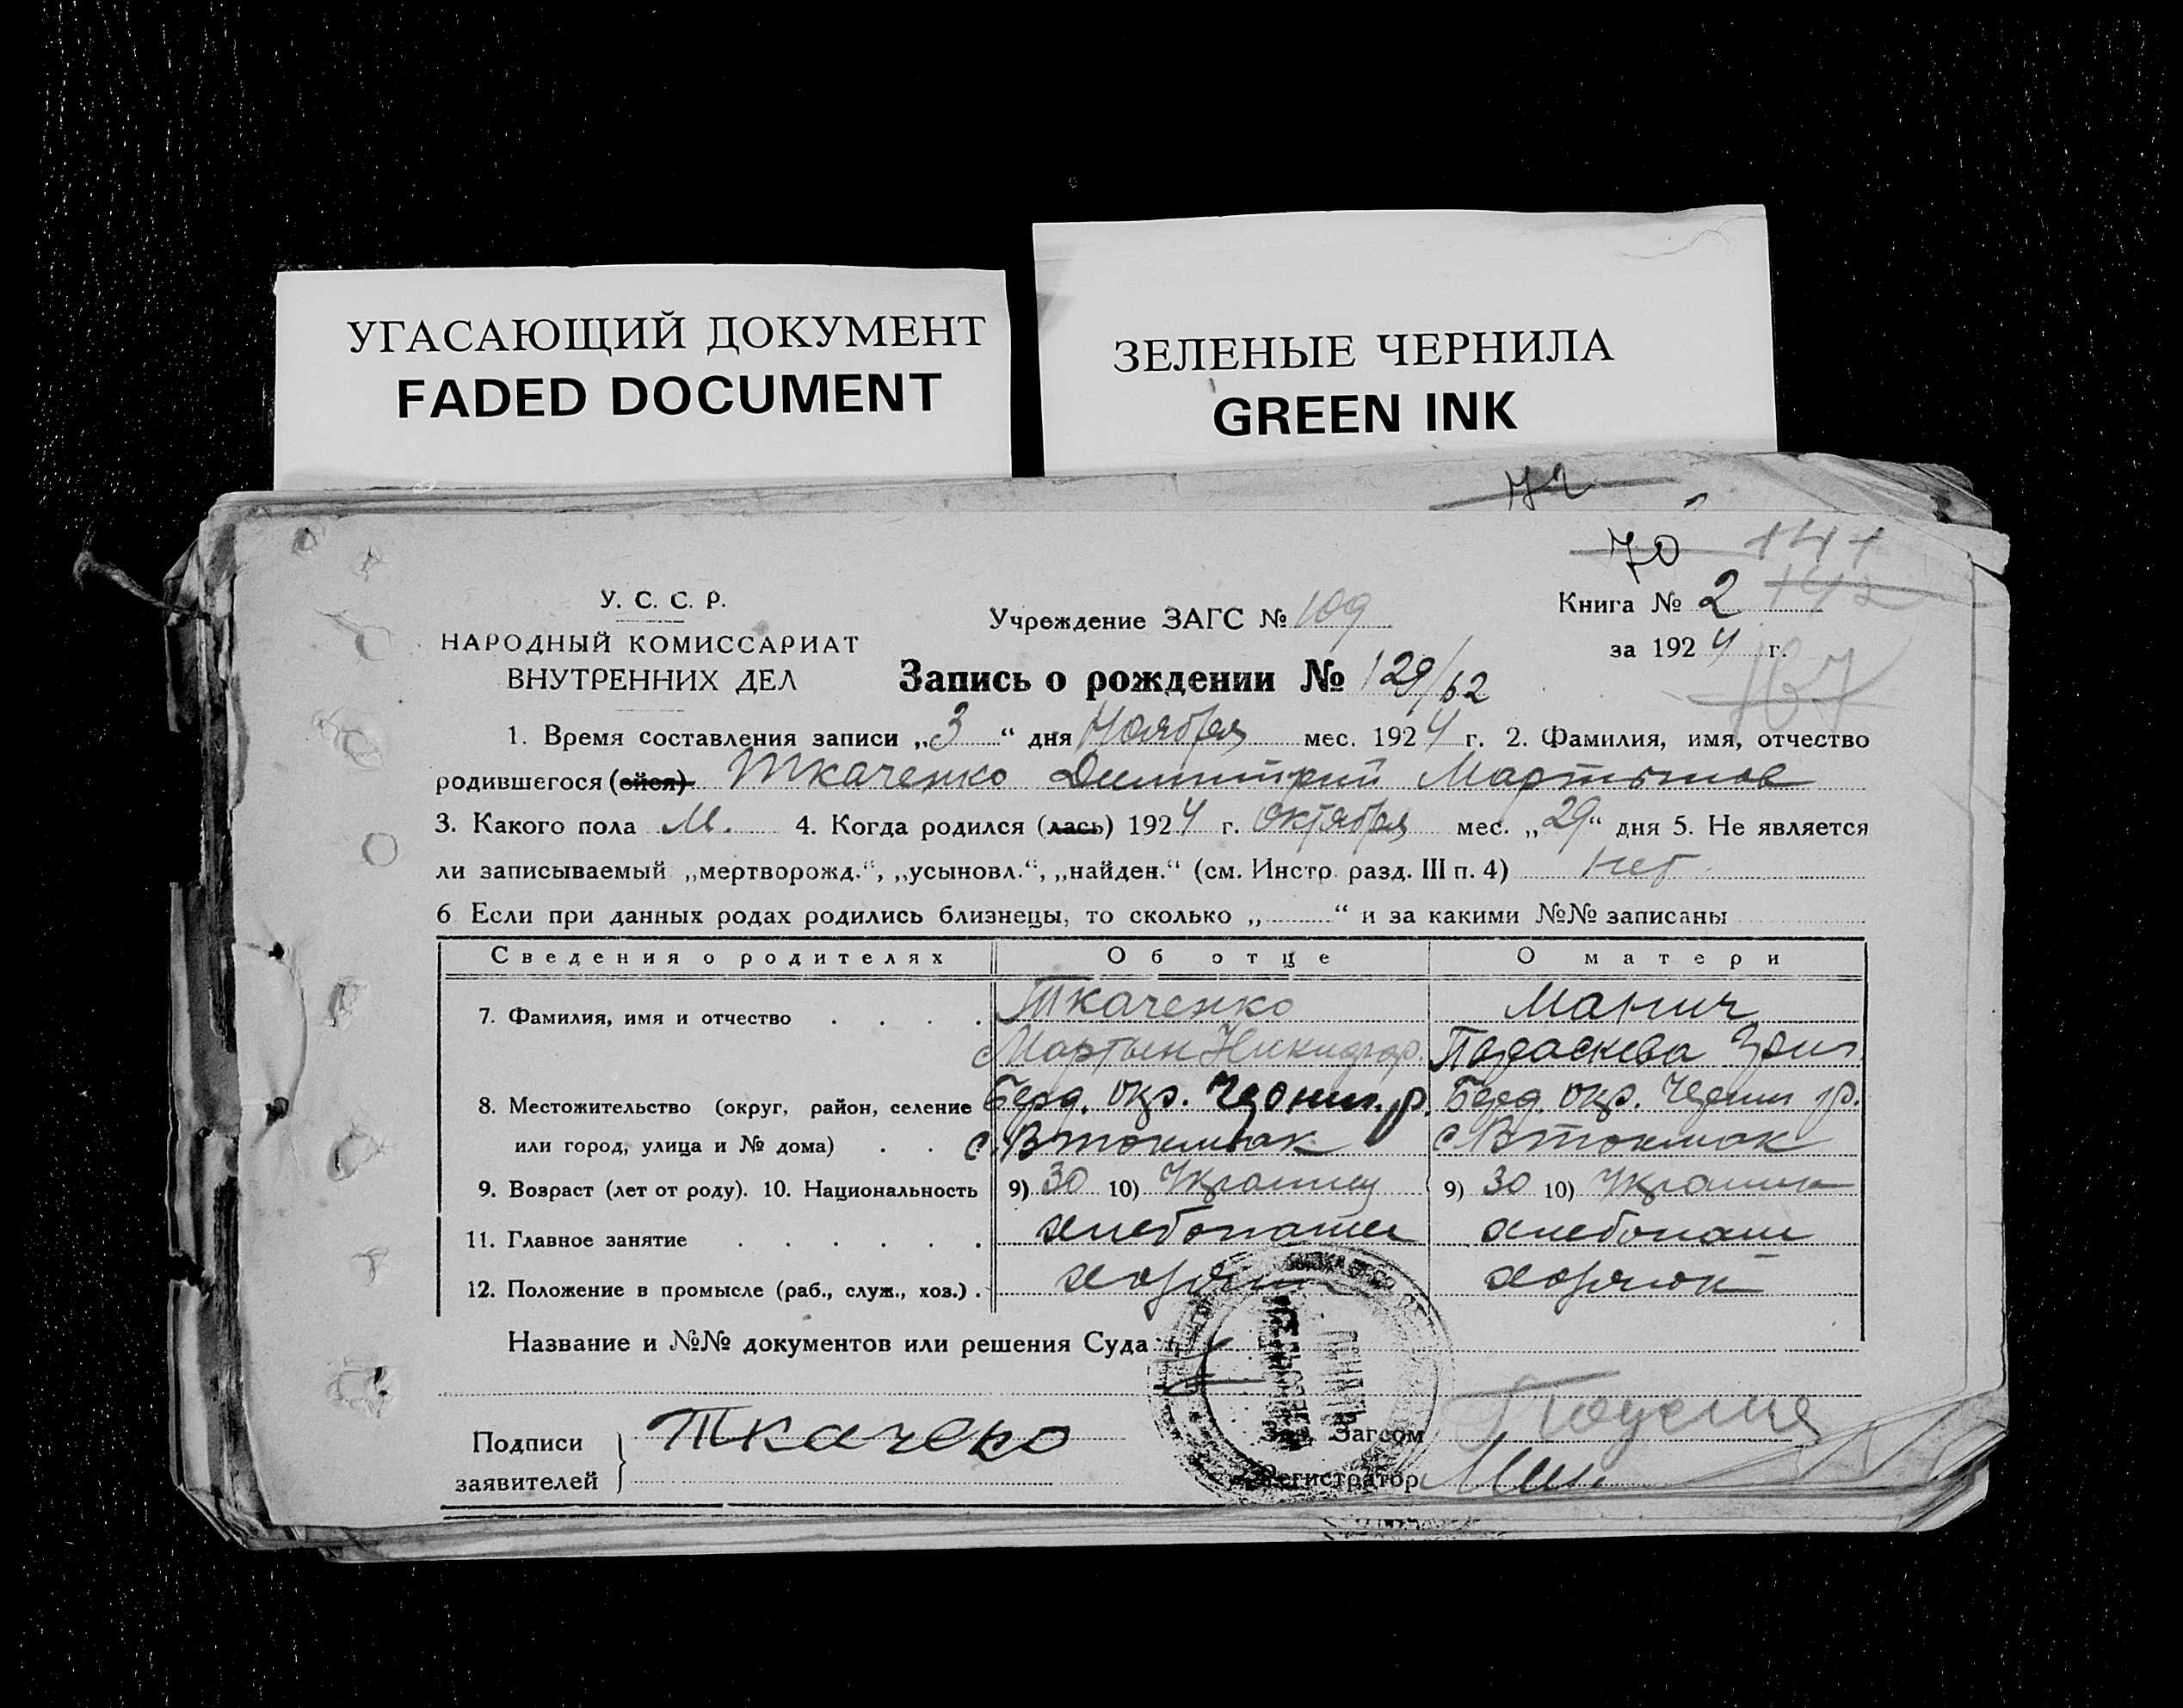 УГАСАЮЩИЙ ДОКУМЕНТ
FADED DOCUMENT
ЗЕЛЕНЫЕ ЧЕРНИЛА
GREEN INK
72
70 141
У. С. С. Р.
НАРОДНЫЙ КОМИССАРИАТ
ВНУТРЕННИХ ДЕЛ
Учреждение ЗАГС № 109
Книга № 2 142
за 1924 г.
167
Запись о рождении № 129/62
1. Время составления записи „3“ дня Ноября мес. 1924 г. 2. Фамилия, имя, отчество
родившегося (ейся) Ткаченко Димитрий Мартынов
3. Какого пола М. 4. Когда родился (лась) 1924 г. Октября мес. „29“ дня 5. Не является
ли записываемый „мертворожд.“, „усыновл.“, „найден.“ (см. Инстр. разд. III п. 4) Нет
6 Если при данных родах родились близнецы, то сколько „ “ и за какими №№ записаны
Сведения о родителях Об отце О матери
7. Фамилия, имя и отчество Ткаченко Манич
Мартын Никифор. Параскева
8. Местожительство (округ, район, селение Берд. окр. р. Берд. окр. р.
или город, улица и № дома) с. Втокмак с Втокмак
9. Возраст (лет от роду). 10. Национальность 9) 30 10) Украинец 9) 30 10) Украинк
11. Главное занятие хлебопашец хлебопаш
12. Положение в промысле (раб., служ., хоз.)
Название и №№ документов или решения Суда
Подписи
заявителей
Ткачеко
Зав. Загсом
Регистратор